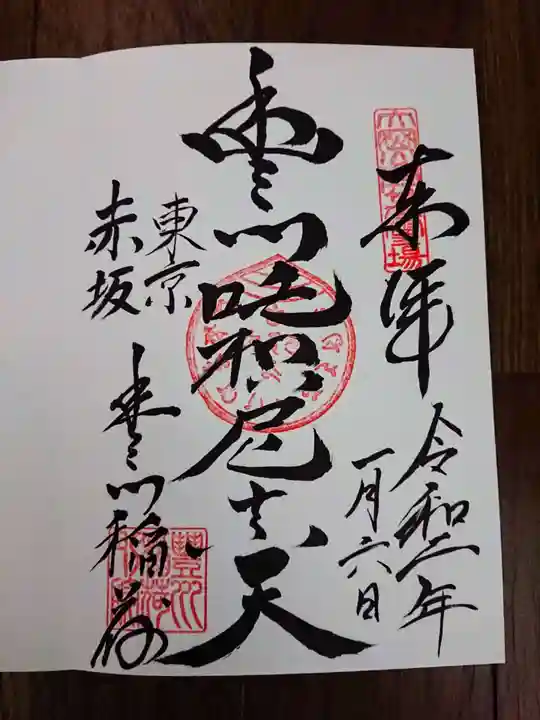 奉拝
令和二年
一月六日
豊川吒枳尼真天
東京
赤坂
豊川稲荷